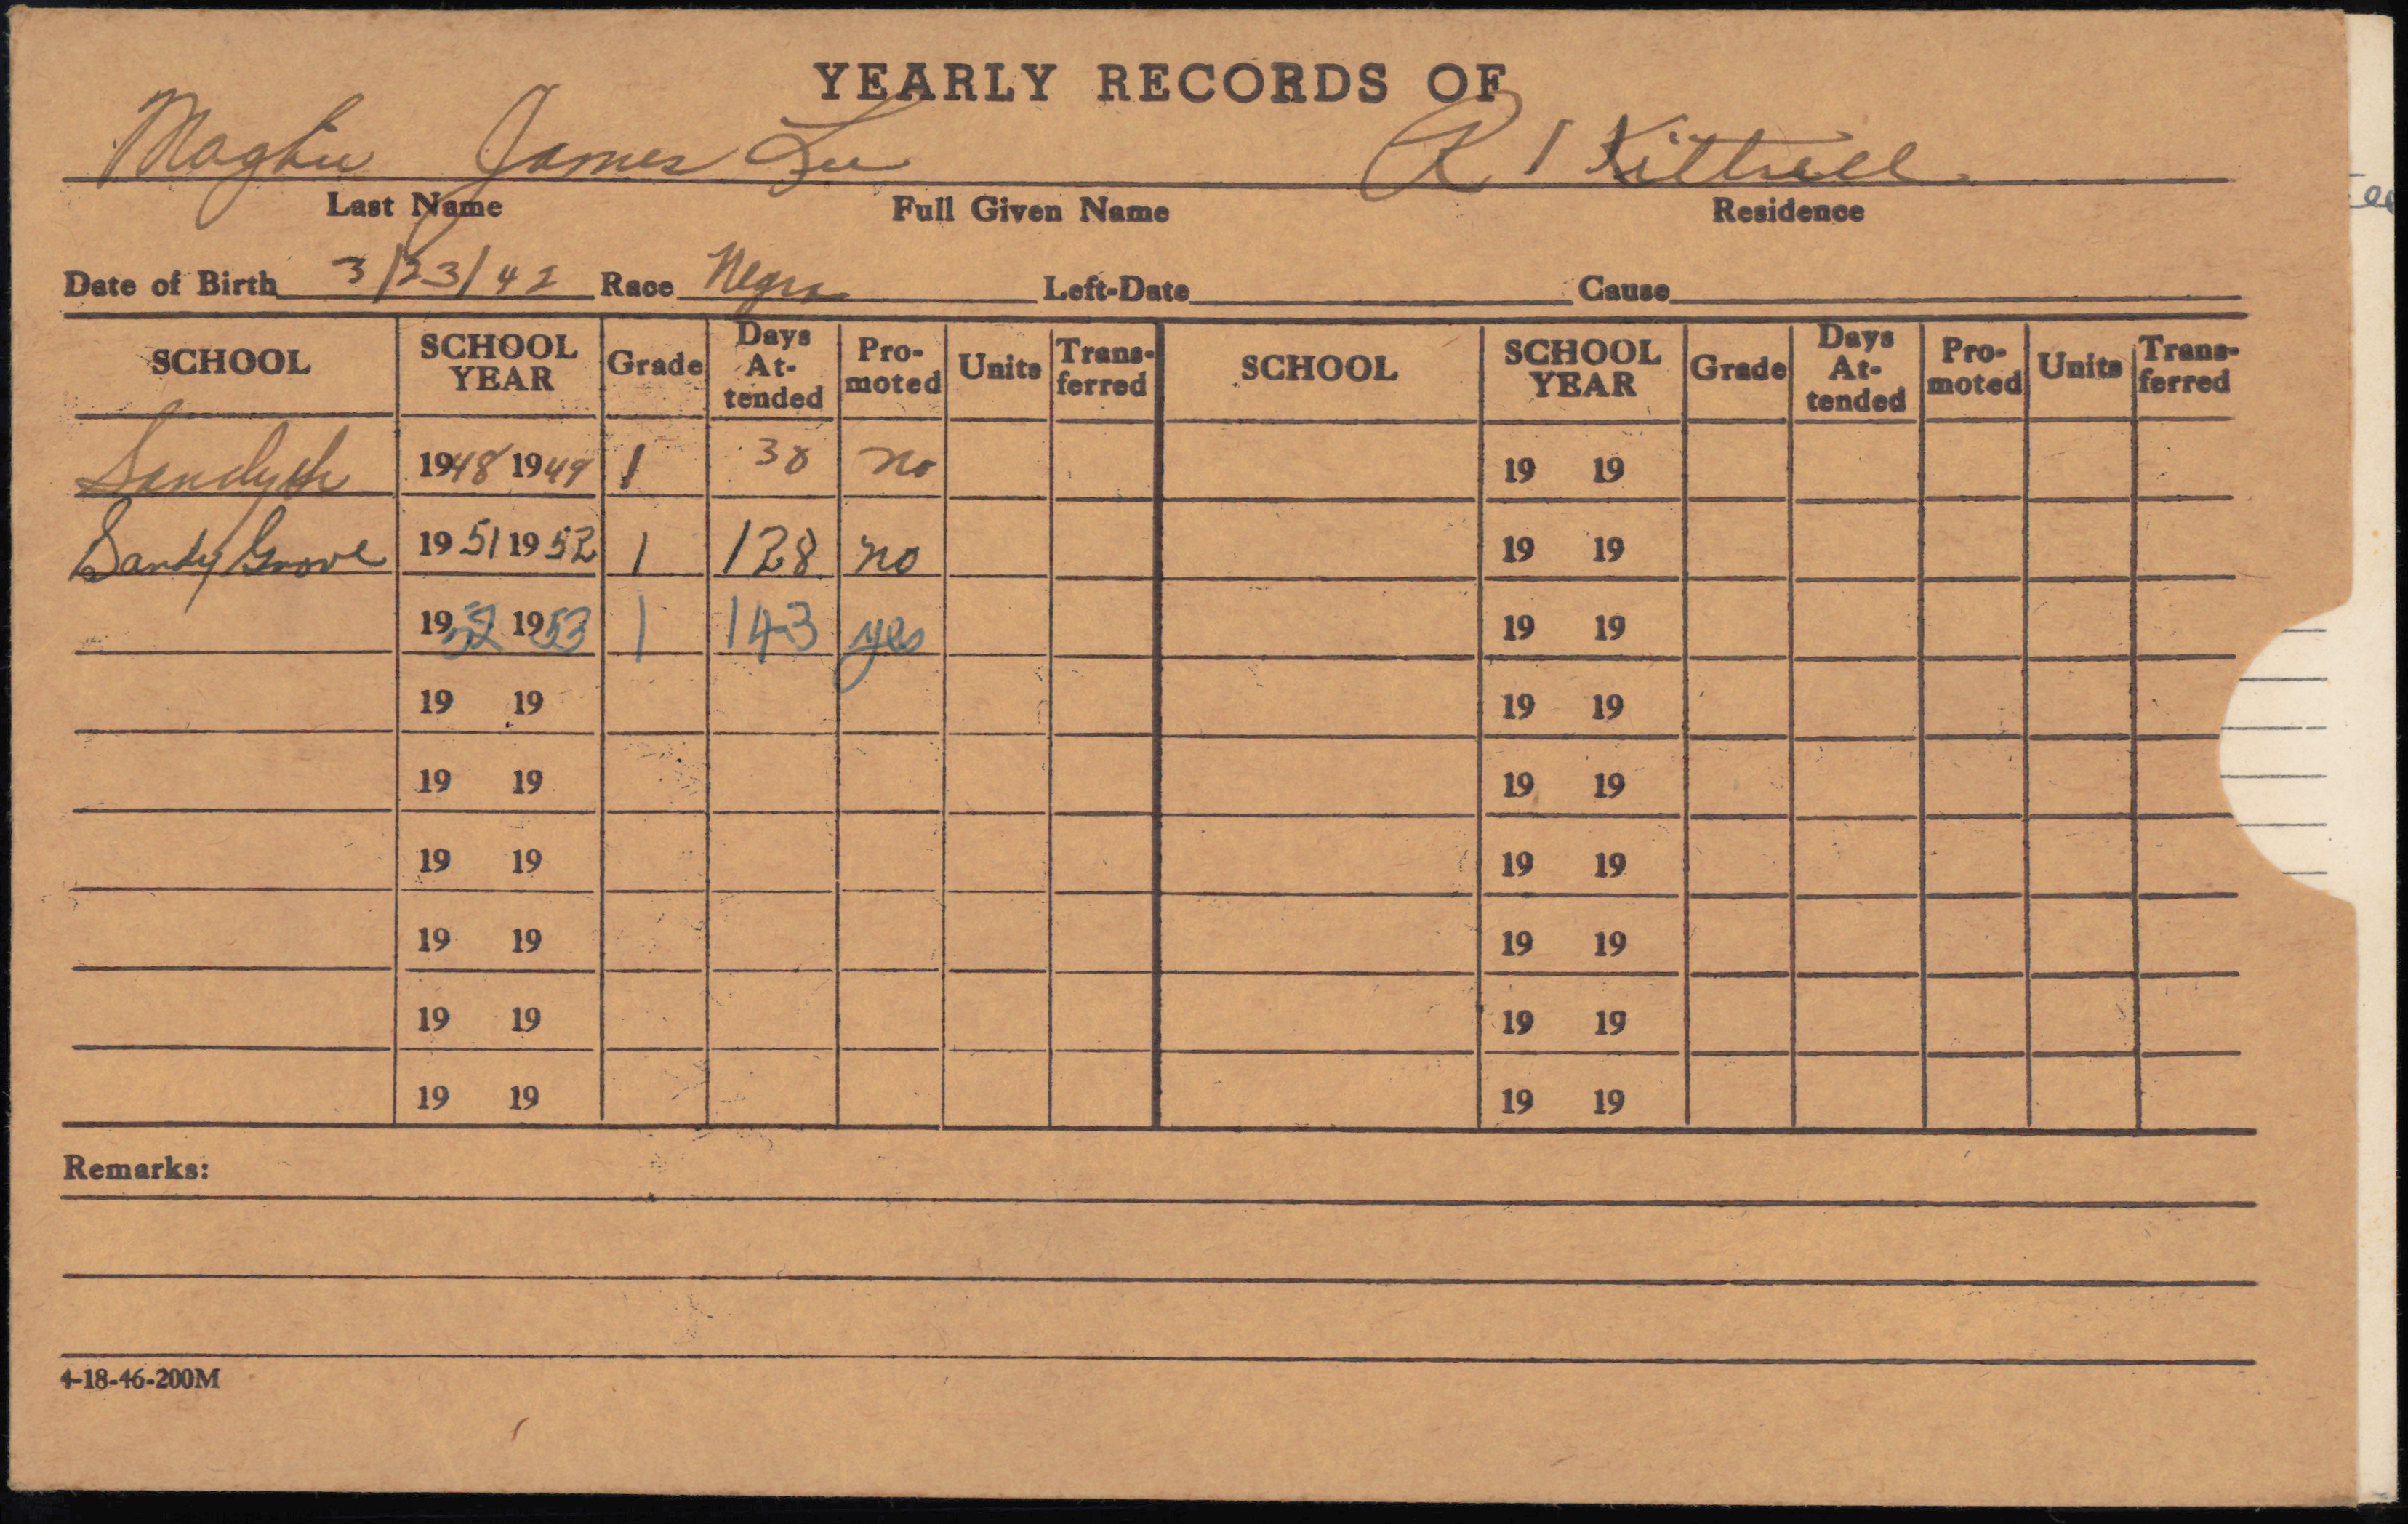 YEARLY RECORDS OF
James Lee R 1 Kittrell
Last Name Full Given Name Residence
Date of Birth 3/23/42 Race Negro Left-Date Cause
SCHOOL SCHOOL YEAR Grade Days At-tended Pro-moted Units Trans-ferred SCHOOL SCHOOL YEAR Grade Days At-tended Pro-moted Units Trans-ferred
1948 1949 1 38 no 19 19
Sandy Grove 1951 1952 1 128 no 19 19
1952 1953 1 143 yes 19 19
19 19 19 19
19 19 19 19
19 19 19 19
19 19 19 19
19 19 19 19
19 19 19 19
Remarks:
4-18-46-200M